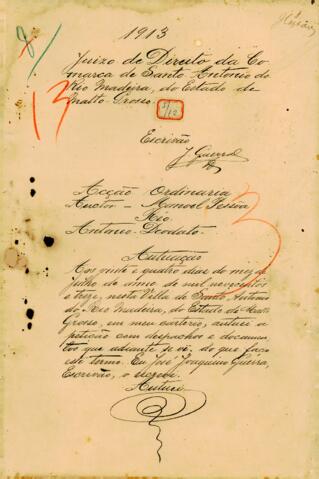 1913
Juizo de Direito da Co-
marca de Santo Antonio do
Rio Madeira, do Estado de
Matto-Grosso.
Escrivão
J. Guerra
Acção Ordinaria
Auctor - Manoel Pessôa
Réo
Antonio Deodato.
Autuação
Aos vinte e quatro dias do mez de
julho do anno de mil novecentos
e treze, nesta Villa de Santo Antonio
do Rio Madeira, do Estado de Matto
Grosso, em meu cartorio, autuei a
petição com despachos e documen-
tos que adiante se vê. do que faço
este termo. Eu José Joaquim Guerra,
Escrivão, o escrevi.
Autuei